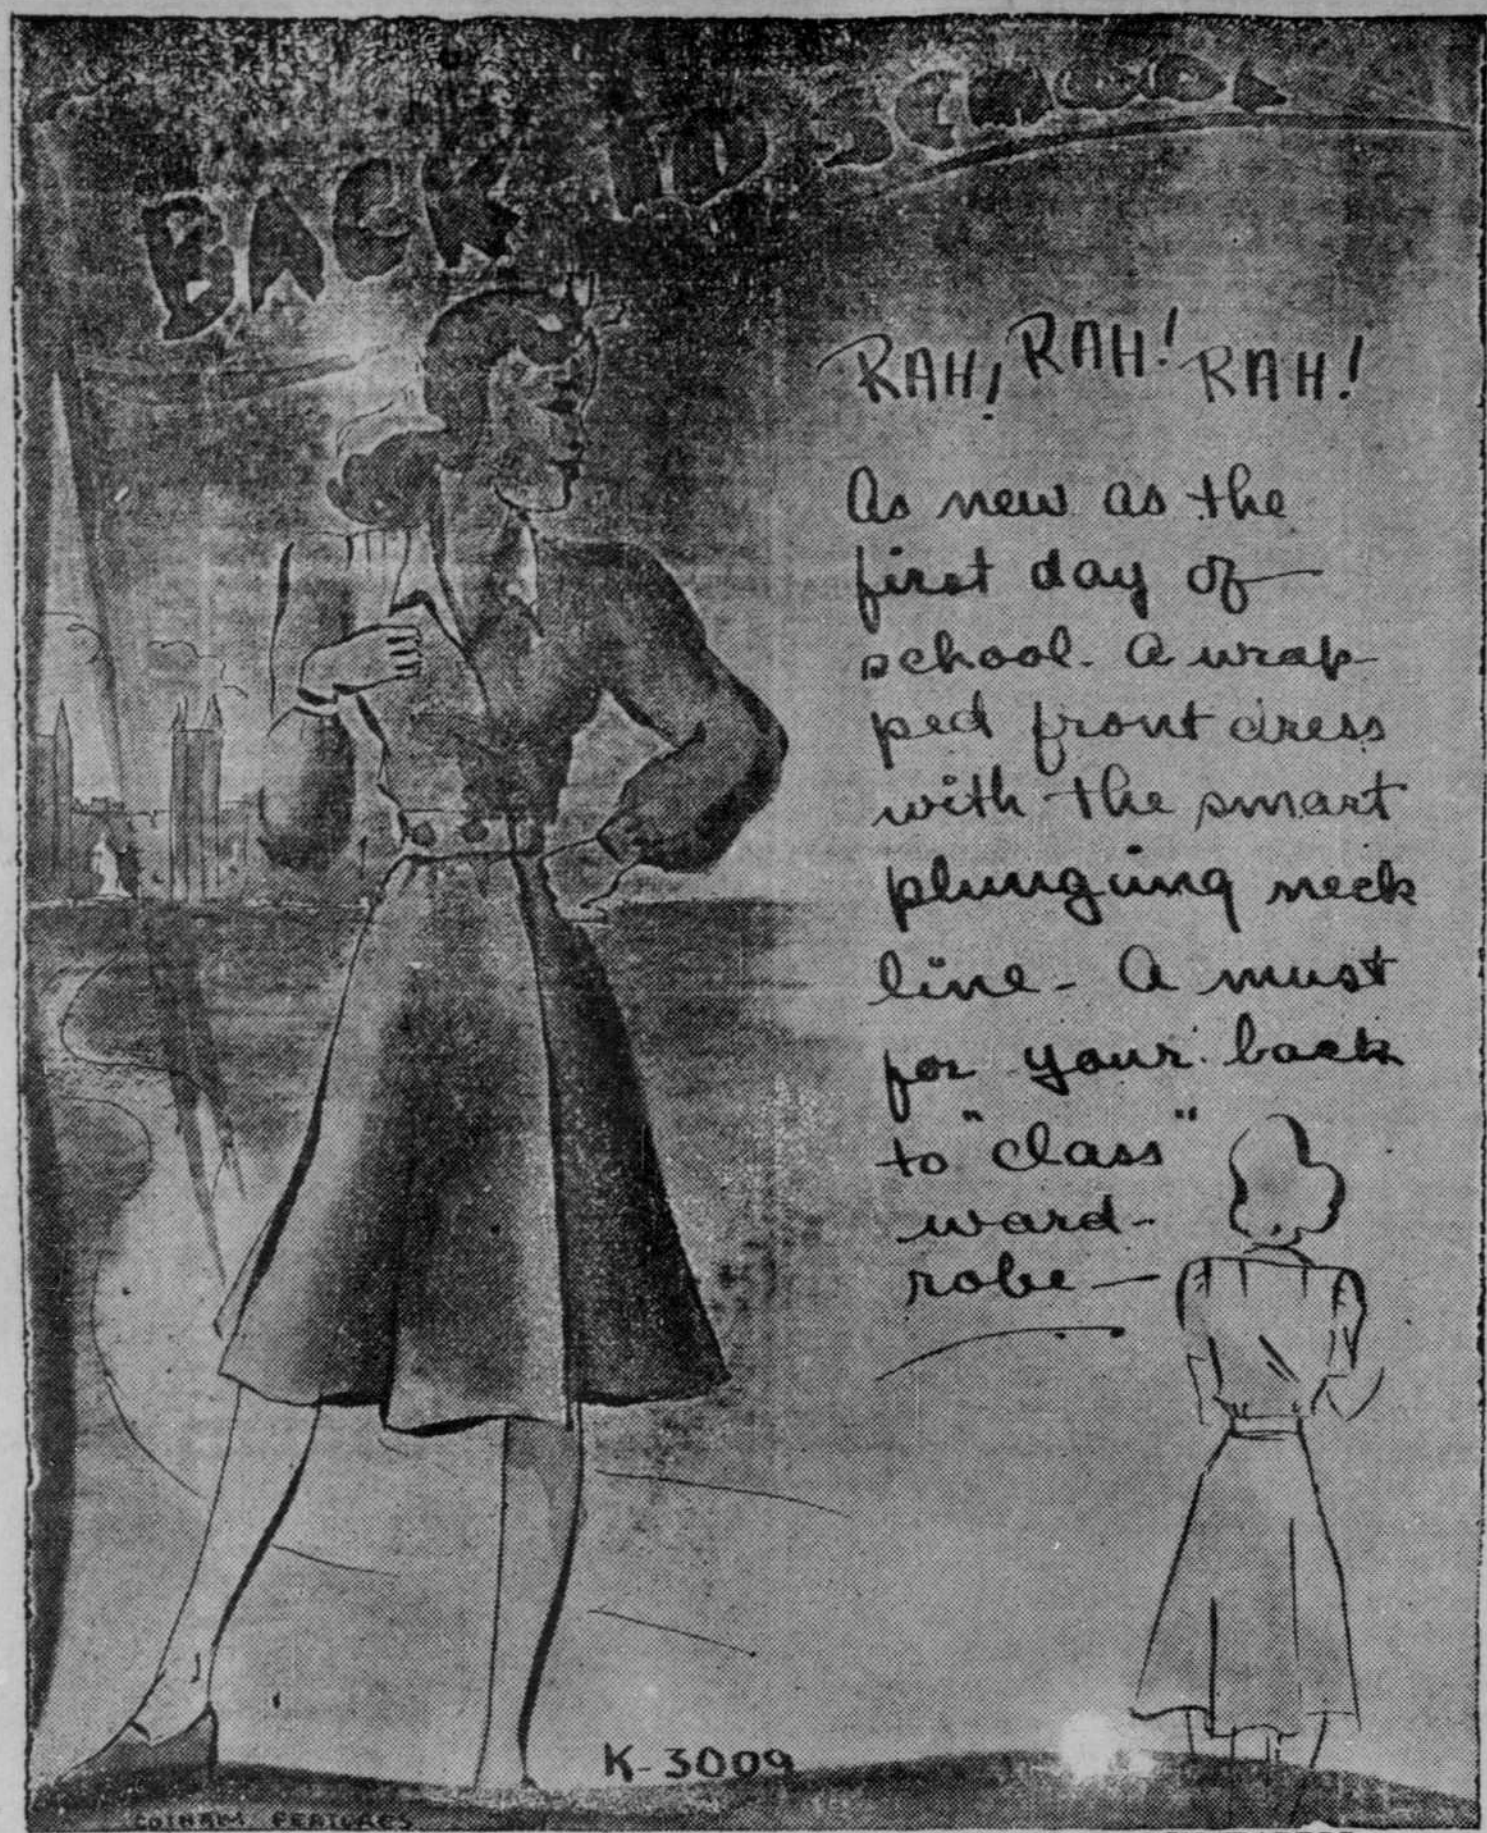 BACK TO SCHOOL
RAH! RAH! RAH!
As new as the
first day of
school. A wrap-
ped front dress
with the smart
plunging neck
line - A must
for your back
to "class"
ward-
robe —
K-3009
GOTHAM FEATURES